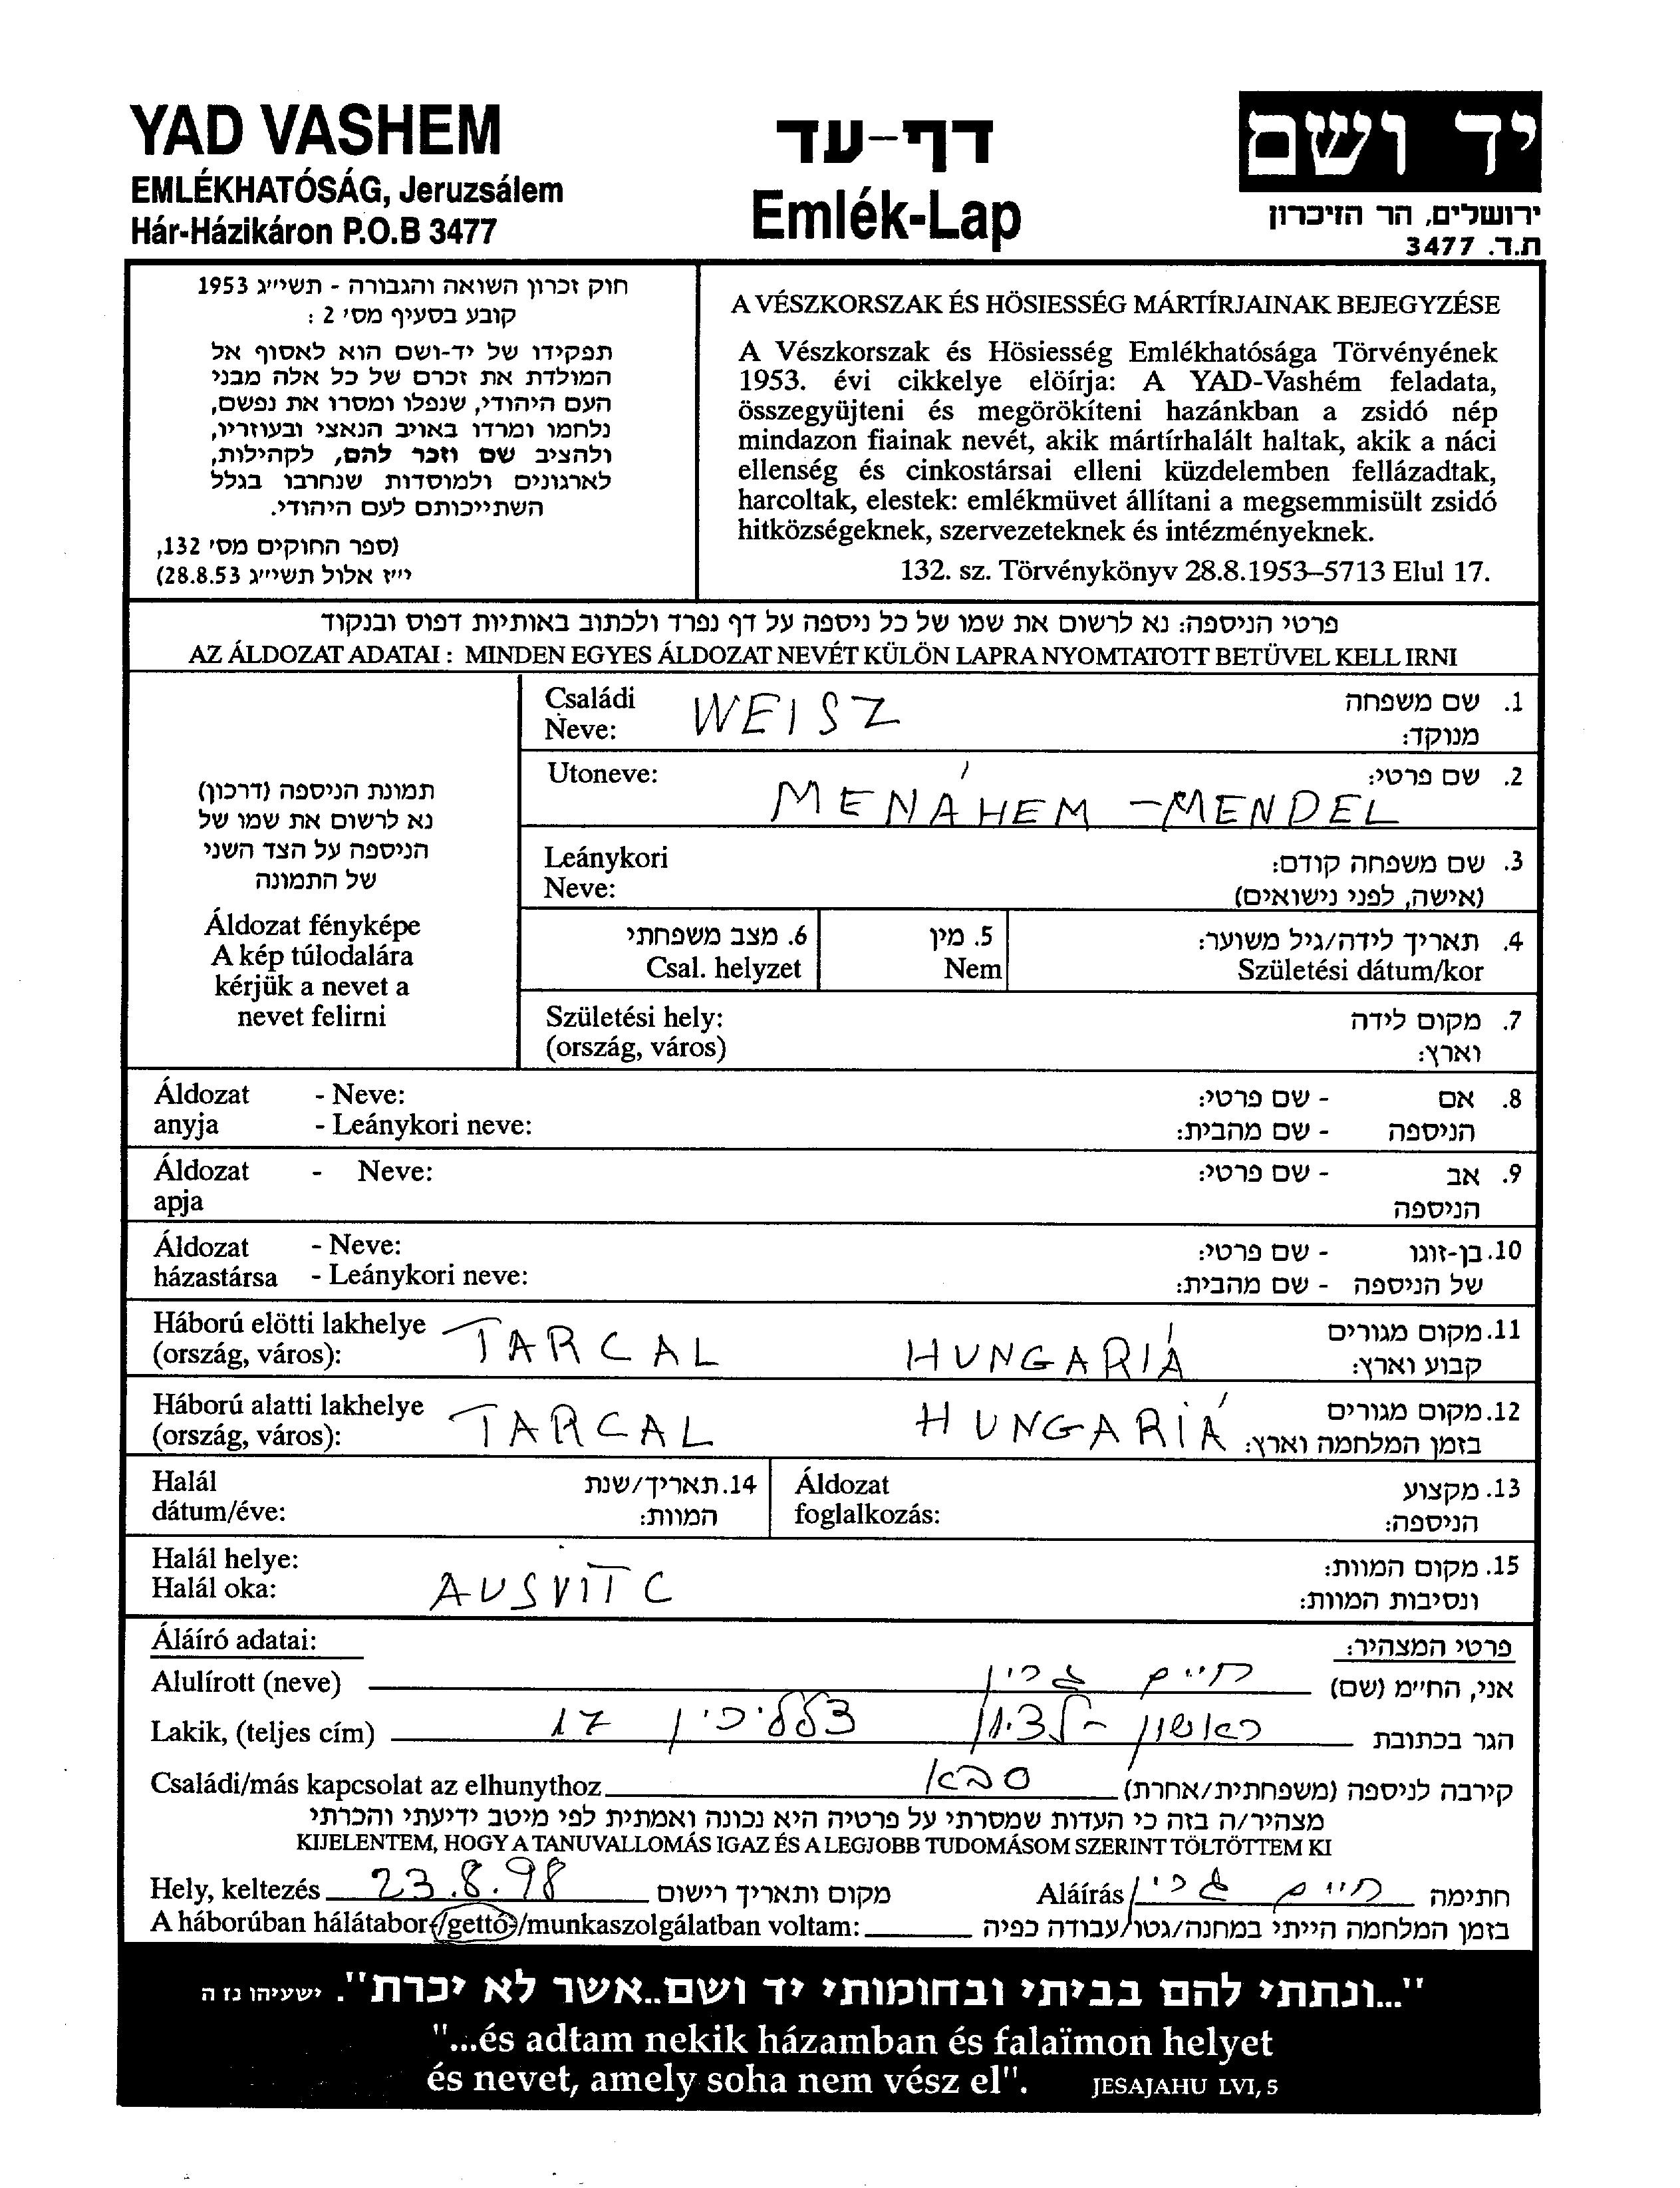 YAD VASHEM
EMLÉKHATÓSÁG, Jeruzsálem
Hár-Házikáron P.O.B 3477
דף-עד
Emlék-Lap
יד ושם
ירושלים, הר הזיכרון
ת.ד. 3477
חוק זכרון השואה והגבורה - תשי״ג 1953
קובע בסעיף מס' 2 :
תפקידו של יד-ושם הוא לאסוף אל
המולדת את זכרם של כל אלה מבני
העם היהודי, שנפלו ומסרו את נפשם,
נלחמו ומרדו באויב הנאצי ובעוזריו,
ולהציב שם וזכר להם, לקהילות,
לארגונים ולמוסדות שנחרבו בגלל
השתייכותם לעם היהודי.
(ספר החוקים מס' 132,
י״ז אלול תשי״ג 28.8.53)
A VÉSZKORSZAK ÉS HÖSIESSÉG MÁRTÍRJAINAK BEJEGYZÉSE
A Vészkorszak és Hösiesség Emlékhatósága Törvényének
1953. évi cikkelye elöírja: A YAD-Vashém feladata,
összegyüjteni és megörökíteni hazánkban a zsidó nép
mindazon fiainak nevét, akik mártírhalált haltak, akik a náci
ellenség és cinkostársai elleni küzdelemben fellázadtak,
harcoltak, elestek: emlékmüvet állítani a megsemmisült zsidó
hitközségeknek, szervezeteknek és intézményeknek.
132. sz. Törvénykönyv 28.8.1953–5713 Elul 17.
פרטי הניספה: נא לרשום את שמו של כל ניספה על דף נפרד ולכתוב באותיות דפוס ובנקוד
AZ ÁLDOZAT ADATAI : MINDEN EGYES ÁLDOZAT NEVÉT KÜLÖN LAPRA NYOMTATOTT BETÜVEL KELL IRNI
תמונת הניספה (דרכון)
נא לרשום את שמו של
הניספה על הצד השני
של התמונה
Áldozat fényképe
A kép túlodalára
kérjük a nevet a
nevet felirni
Családi WEISZ 1. שם משפחה
Neve: מנוקד:
Utoneve: MENÁHEM - MENDEL 2. שם פרטי:
Leánykori 3. שם משפחה קודם:
Neve: (אישה, לפני נישואים)
6. מצב משפחתי 5. מין 4. תאריך לידה/גיל משוער:
Csal. helyzet Nem Születési dátum/kor
Születési hely: 7. מקום לידה
(ország, város) וארץ:
Áldozat - Neve: - שם פרטי: 8. אם
anyja - Leánykori neve: - שם מהבית: הניספה
Áldozat - Neve: - שם פרטי: 9. אב
apja הניספה
Áldozat - Neve: - שם פרטי: 10. בן-זוגו
házastársa - Leánykori neve: - שם מהבית: של הניספה
Háború elötti lakhelye TARCAL HUNGARIÁ 11. מקום מגורים
(ország, város): קבוע וארץ:
Háború alatti lakhelye TARCAL HUNGARIÁ 12. מקום מגורים
(ország, város): בזמן המלחמה וארץ:
Halál 14. תאריך/שנת Áldozat 13. מקצוע
dátum/éve: המוות: foglalkozás: הניספה:
Halál helye: 15. מקום המוות:
Halál oka: AUSVITC ונסיבות המוות:
Áláíró adatai: פרטי המצהיר:
Alulírott (neve) חיים אני, החי״מ (שם)
Lakik, (teljes cím) ראשון - לציון 17 הגר בכתובת
Családi/más kapcsolat az elhunythoz סבא קירבה לניספה (משפחתית/אחרת)
מצהיר/ה בזה כי העדות שמסרתי על פרטיה היא נכונה ואמתית לפי מיטב ידיעתי והכרתי
KIJELENTEM, HOGY A TANUVALLOMÁS IGAZ ÉS A LEGJOBB TUDOMÁSOM SZERINT TÖLTÖTTEM KI
Hely, keltezés 23.8.98 מקום ותאריך רישום Aláírás חיים חתימה
A háborúban hálátabor/gettó/munkaszolgálatban voltam: בזמן המלחמה הייתי במחנה/גטו/עבודה כפיה
"...ונתתי להם בביתי ובחומותי יד ושם..אשר לא יכרת". ישעיהו נז ה
"...és adtam nekik házamban és falaïmon helyet
és nevet, amely soha nem vész el". JESAJAHU LVI, 5